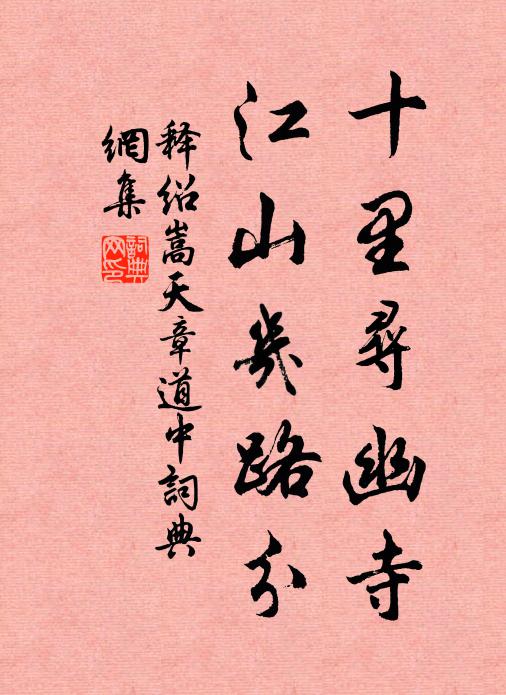 十里尋幽寺
江山幾路分
释绍嵩天章道中詞典
網集
詞典
网印